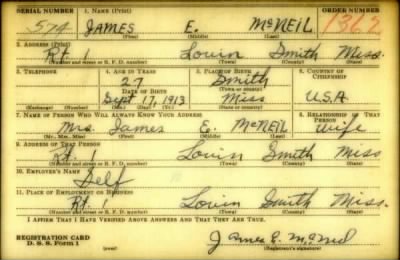 SERIAL NUMBER 1. NAME (Print) ORDER NUMBER
574 JAMES E. McNEIL 1367
(First) (Middle) (Last)
2. ADDRESS (Print)
Rt. 1 Louin Smith Miss.
(Number and street or R. F. D. number) (Town) (County) (State)
3. TELEPHONE 4. AGE IN YEARS 5. PLACE OF BIRTH 6. COUNTRY OF CITIZENSHIP
27 Smith
(Town or county)
DATE OF BIRTH
Sept 17, 1913 Miss U.S.A
(Exchange) (Number) (Mo.) (Day) (Yr.) (State or country)
7. NAME OF PERSON WHO WILL ALWAYS KNOW YOUR ADDRESS 8. RELATIONSHIP OF THAT PERSON
Mrs. James E. McNEIL Wife
(Mr., Mrs., Miss) (First) (Middle) (Last)
9. ADDRESS OF THAT PERSON
Rt. 1 Louin Smith Miss
(Number and street or R. F. D. number) (Town) (County) (State)
10. EMPLOYER'S NAME
Self
11. PLACE OF EMPLOYMENT OR BUSINESS
Rt. 1 Louin Smith Miss.
(Number and street or R. F. D. number) (Town) (County) (State)
I AFFIRM THAT I HAVE VERIFIED ABOVE ANSWERS AND THAT THEY ARE TRUE.
REGISTRATION CARD
D. S. S. Form 1
James E. McNeil
(Registrant's signature)